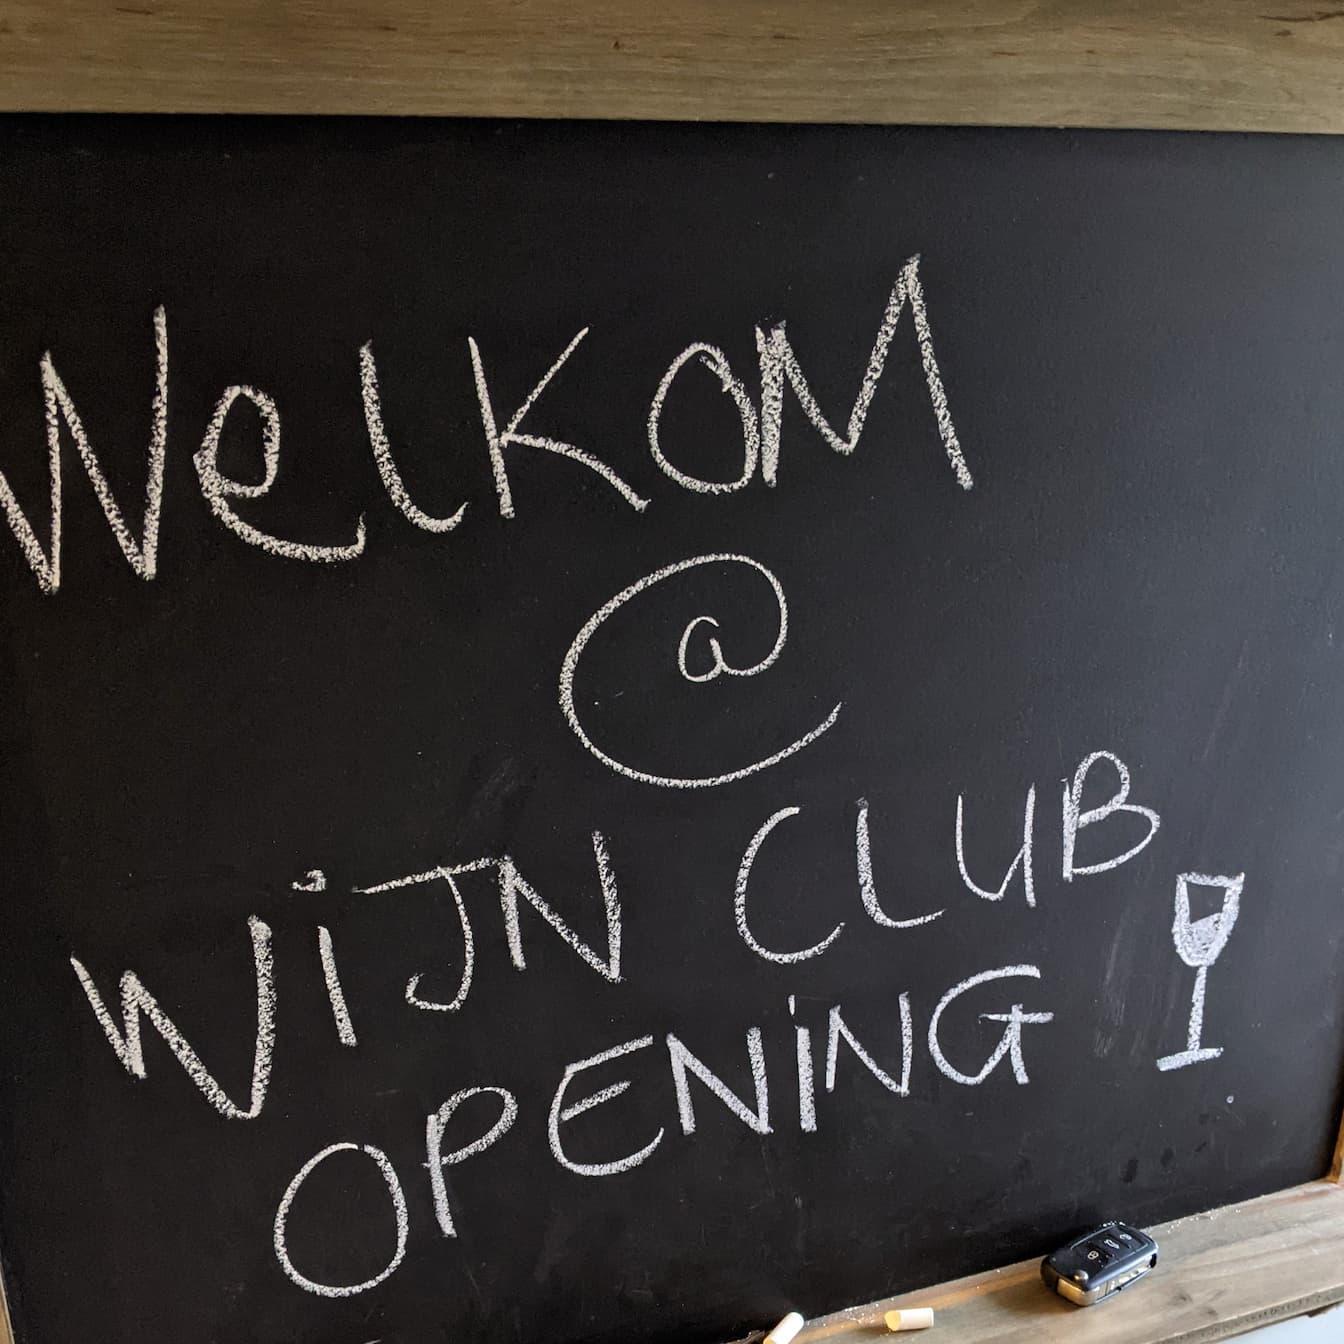 WelKOM
@
WiJN CLUB
OPENiNG